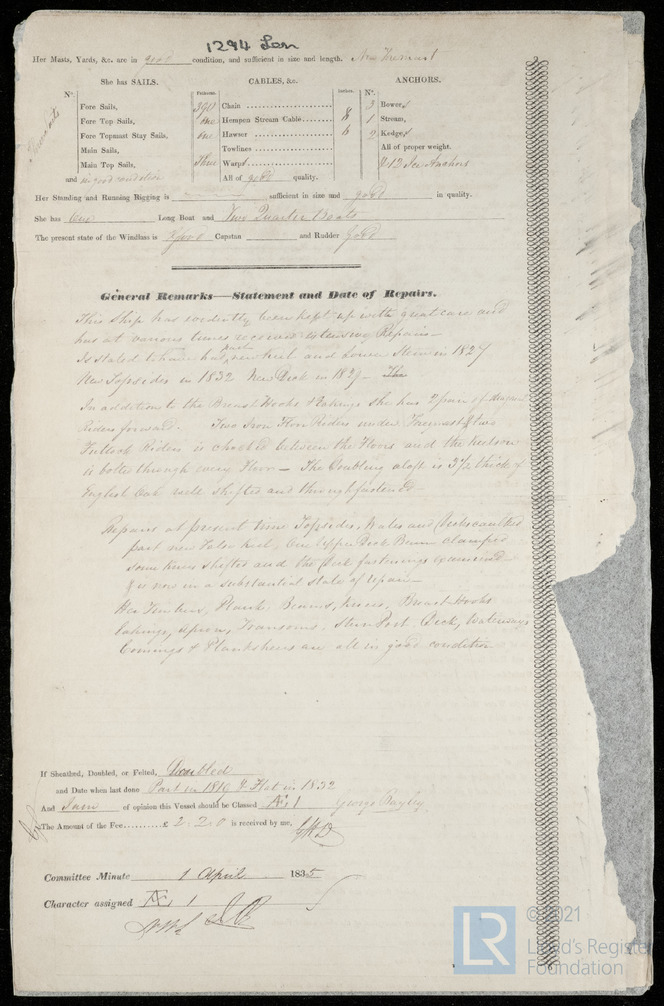 1294 Lon
Her Masts, Yards, &c. are in good condition, and sufficient in size and length.
She has SAILS. CABLES, &c. ANCHORS.
No. Fathoms. Inches. No.
Fore Sails, 390 Chain 3 Bowers
Fore Top Sails, One Hempen Stream Cable 8 1 Stream,
Fore Topmast Stay Sails, One Hawser 6 2 Kedges
Main Sails, Towlines All of proper weight.
Main Top Sails, Three Warps & 12 Ice Anchors
and in good condition All of good quality.
Her Standing and Running Rigging is sufficient in size and good in quality.
She has One Long Boat and Two Quarter Boats
The present state of the Windlass is Good Capstan and Rudder Good
General Remarks—Statement and Date of Repairs.
This Ship has evidently been kept up with great care and
has at various times received extensive Repairs—
Is stated to have had part new keel and Lower Stem in 1827
New Topsides in 1832 New Deck in 1829 — The
In addition to the Breast Hooks & she has 2 pair of
Riders forward. Two Iron Floor Riders under Foremast & two
Futtock Riders is between the Floors and the keelson
is bolted through every Floor — The Doubling aloft is 3½ thick of
English Oak well shifted and through fastened
Repairs at present time Topsides, Wales and Decks caulked
part new False keel, One Upper Deck Beam clamped
some knees shifted and the Deck fastenings examined
& is now in a substantial state of repair—
Her Timbers, Plank, Beams, knees, Breast Hooks
Apron, Transoms, Stern Post Deck, Waterways
Comings & Planksheers are all in good condition
If Sheathed, Doubled, or Felted, Doubled
and Date when last done Part in 1816 & in 1832
And I am of opinion this Vessel should be Classed Æ 1 George Bayley
The Amount of the Fee £ 2.2.0 is received by me,
Committee Minute 1 April 1835
Character assigned Æ 1
LR
© 2021
Lloyd's Register
Foundation